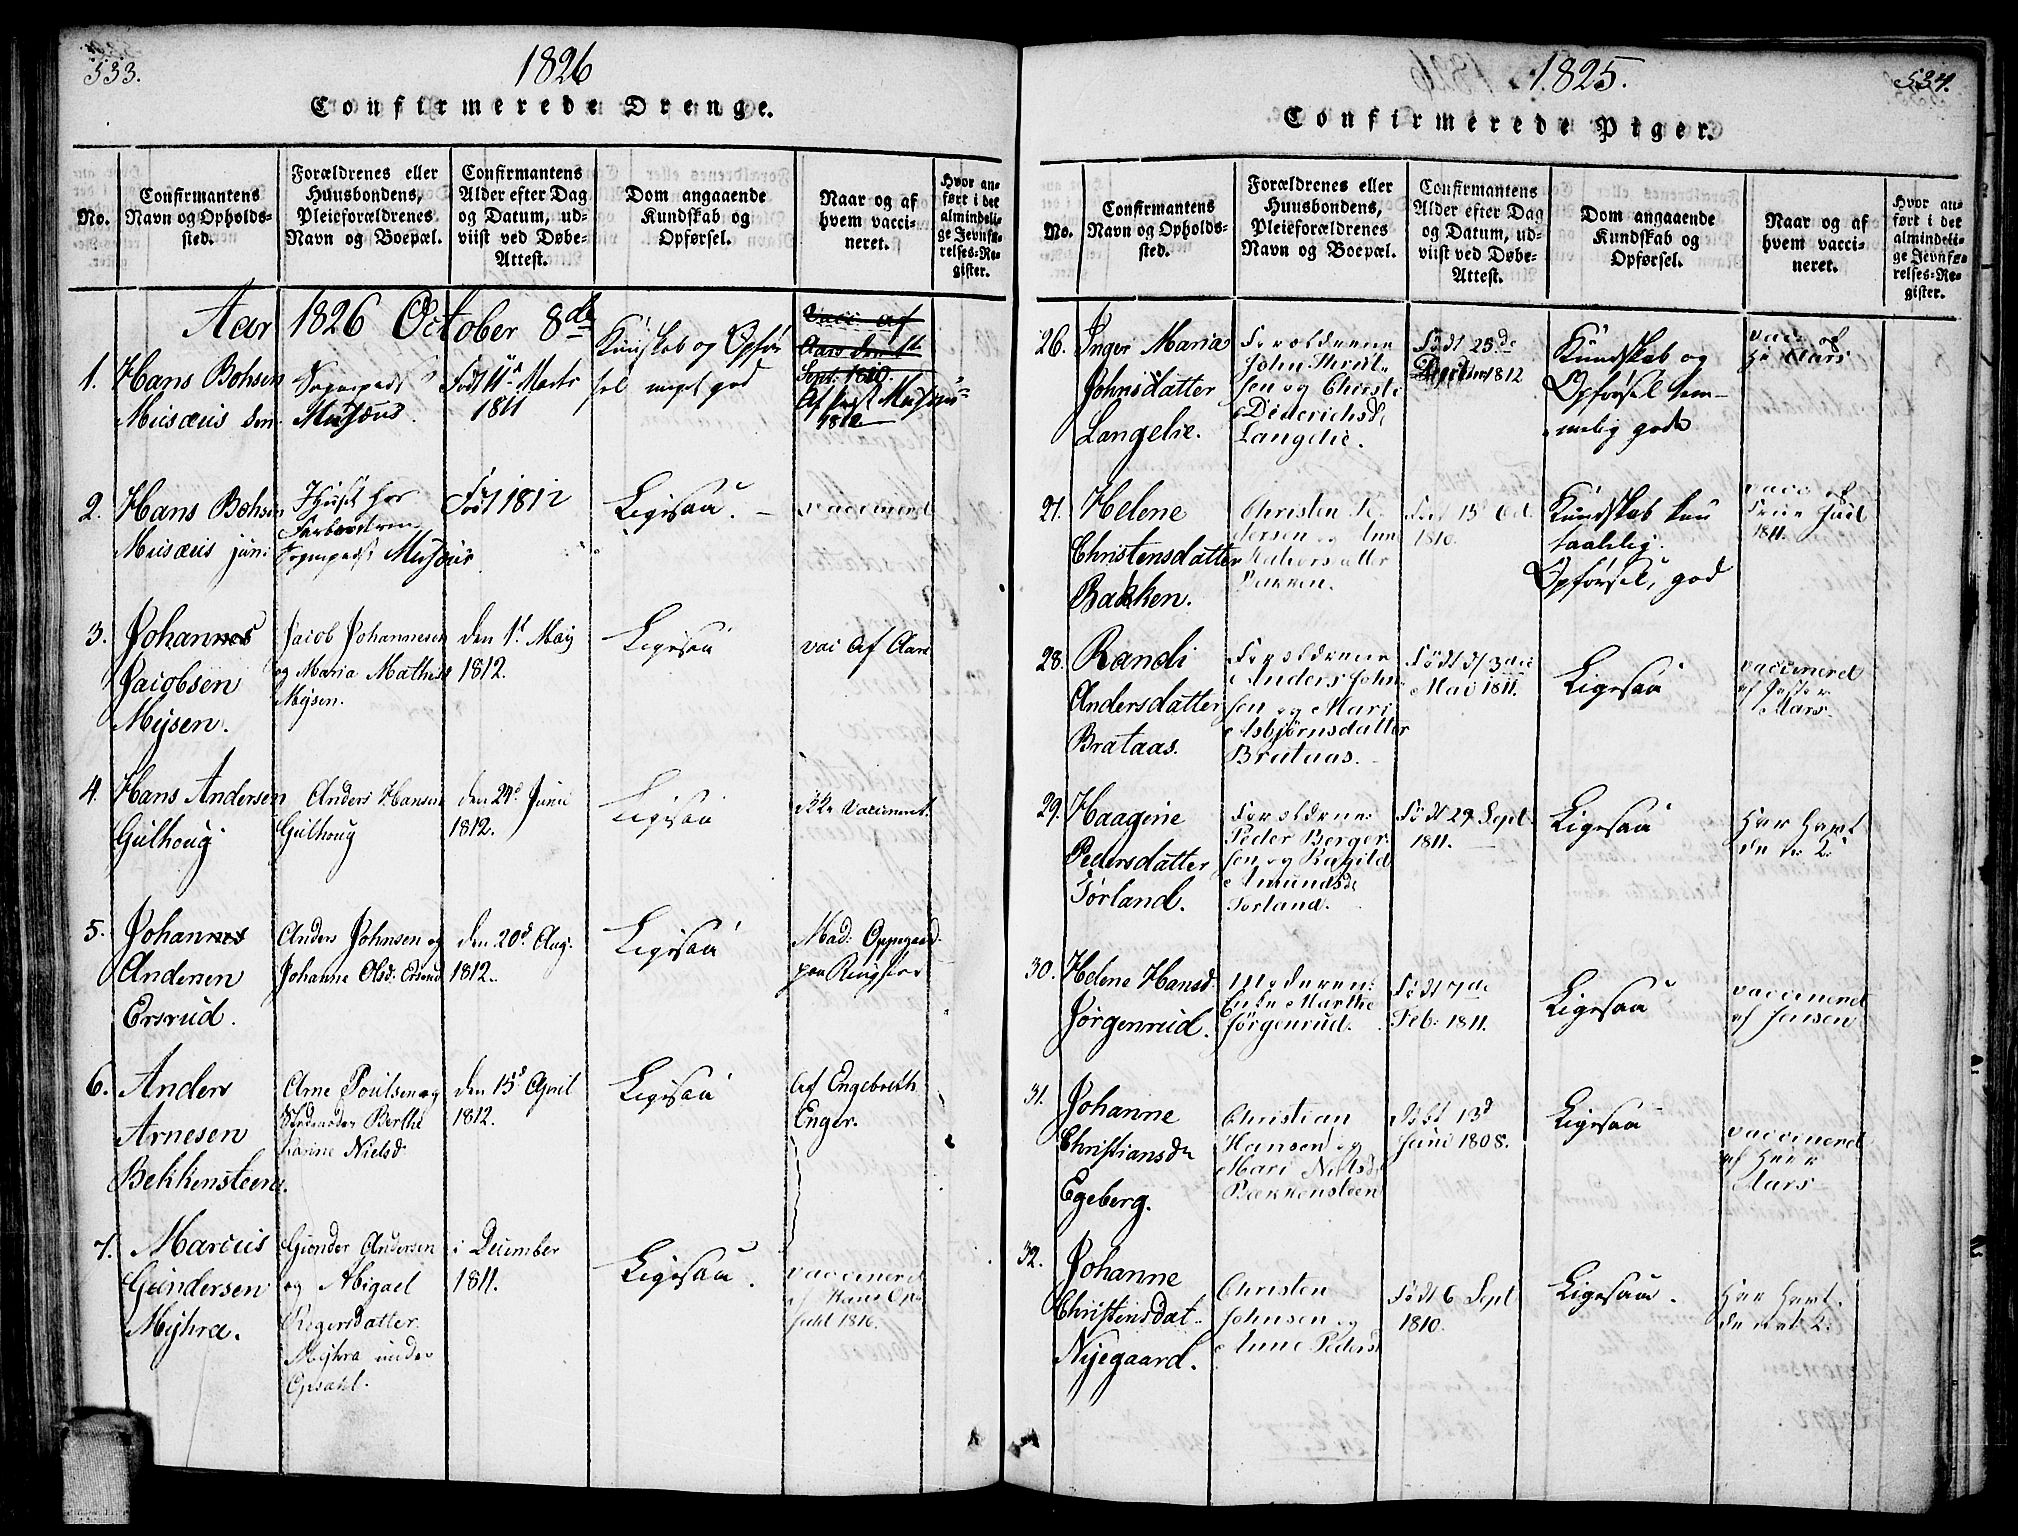 533.
1826
Confirmerede Drenge.
No.
Confirmantens
Navn og Opholds-
sted.
Forældrenes eller
Huusbondens,
Pleieforældrenes
Navn og Boepæl.
Confirmantens
Alder efter Dag
og Datum, ud-
viist ved Døbe-
Attest.
Dom angaaende
Kundskab og
Opførsel.
Naar og af
hvem vacci-
neret.
Hvor an-
ført i det
almindeli-
ge Jevnfø-
relses-Re-
gister.
Aar 1826 October 8de
1.
Hans Bohsen
Musæus sen.
Sogneprest
Musæus
Født 11te Marts
1811
Kundskab og Opfør
sel meget god
Vacc: af
Aars den 1te
Sept. 1810.
Af Prost Musæus
1812
2.
Hans Bohsen
Musæus jun:
I Huset hos
Farbroderen
Sognepr. Musæus
Født 1812
Ligesaa.
vaccinered
3.
Johannes
Jacobsen
Mysen.
Jacob Johannesen
og Maria Mathis
Mysen.
den 1t May
1812.
Ligesaa
vac af Aars
4.
Hans Andersen
Gulhoug
Anders Hansen
Gulhoug
den 24d Juni
1812.
Ligesaa
ikke vaccineret.
5.
Johannes
Andersen
Ersrud.
Anders Johnsen og
Johanne Olsd: Ersrud
den 20d Aug:
1812.
Ligesaa
Mad: Oppegaard
paa
6.
Anders
Arnesen
Bekkensteen.
Arne Poulsen og
Stedmoder Berthe
Karine Nielsd:
den 15d April
1812.
Ligesaa
af Engebreth
Enger.
7.
Marcus
Gundersen
Myhra.
Gunder Andersen
og Abigael
Rogersdatter
Myhra under
Opsahl.
i December
1811.
Ligesaa.
vaccinered
af Hans Op-
sahl 1816.
534.
1825.
Confirmerede Piger.
No.
Confirmantens
Navn og Opholds-
sted.
Forældrenes eller
Huusbondens,
Pleieforældrenes
Navn og Boepæl.
Confirmantens
Alder efter Dag
og Datum, ud-
viist ved Døbe-
Attest.
Dom angaaende
Kundskab og
Opførsel.
Naar og af
hvem vacci-
neret.
Hvor an-
ført i det
almindeli-
ge Jevnfø-
relses-Re-
gister.
26.
Inger Maria
Johnsdatter
Langelie.
Foreldrene
John Thrul-
sen og Christi
Dinderichsd
Langelie.
Født 25de
1812
Kundskab og
Opførsel tem-
melig gode
vacc af
Hr Aars
27.
Helene
Christensdatter
Bakken.
Christen Pe
dersen og Anne
Halvorsdatter
Bakken.
Født 15 Oct
1810.
Kundskab kun
taalelig.
Opførsel, god
vacc af
Juel
1811.
28.
Randi
Andersdatter
Brataas.
Foreldrene
Anders John-
sen og Mari
Asbjørnsdatter
Brataas.
Født d 3die
Mai 1811.
Ligesaa
vaccinered
af Pastor
Aars.
29.
Haagine
Pedersdatter
Torland.
Foreldrene:
Peder Berger-
sen og Ragnild
Amundsd
Torland.
Født 29 Sept
1811.
Ligesaa
Har havt
de n: K:
30.
Helene Hansd:
Jørgenrud.
Moderen:
Enke Marthe
Jørgenrud.
Født 7de
Feb: 1811.
Ligesaa
vaccinered
af Jensen
31.
Johanne
Christiansd
Egeberg.
Christian
Hansen og
Mari Nielsd
Bækkensteen
Født 13d
Juni 1808.
Ligesaa
vaccinered
af Herr
Aars
32.
Johanne
Christensdat.
Nyegaard.
Christen
Johnsen og
Anne Pedersd
Født 6 Sept
1810.
Ligesaa.
Har havt
de nat: K: